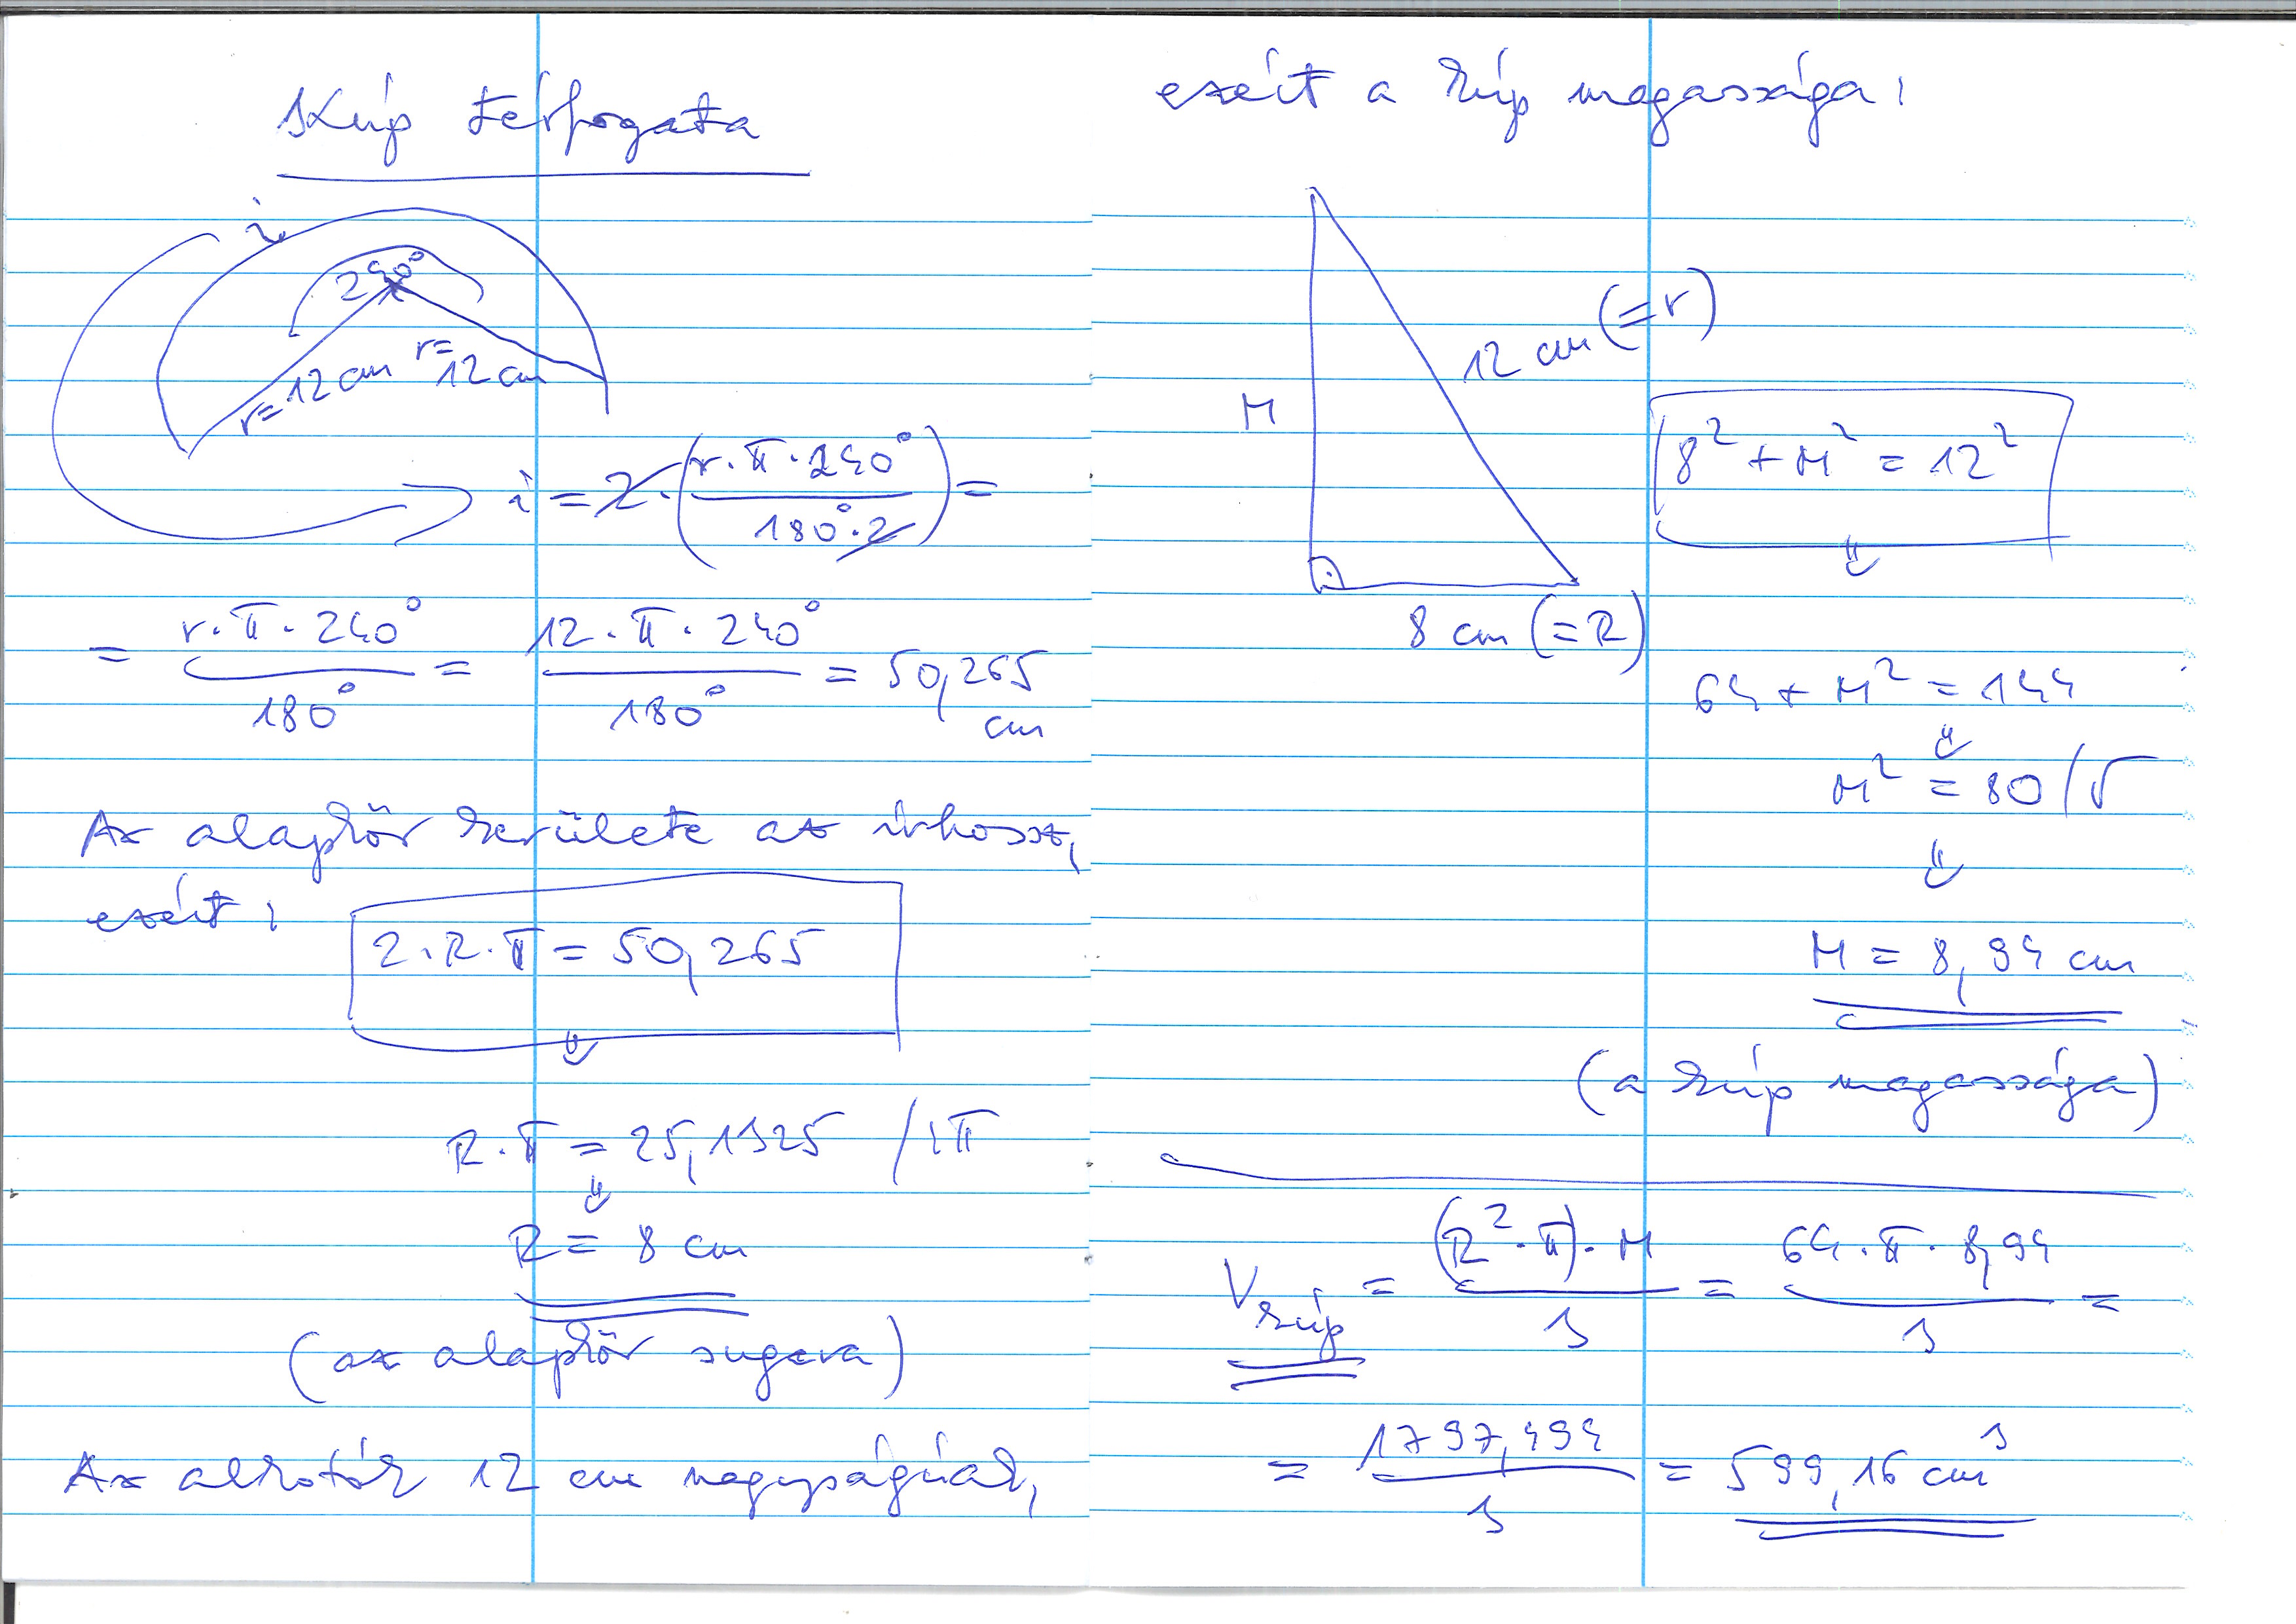 Kúp térfogata
i
240°
r= 12 cm r= 12 cm
i = 2 · (r · π · 240° / 180° · 2) =
= r · π · 240° / 180° = 12 · π · 240° / 180° = 50,265 cm
Az alapkör kerülete az ívhossz,
ezért:
2 · R · π = 50,265
⇓
R · π = 25,1325 /:π
⇓
R = 8 cm
(az alapkör sugara)
Az alkotók 12 cm nagyságúak,
ezért a kúp magassága:
12 cm (=r)
M
8² + M² = 12²
⇓
8 cm (=R)
64 + M² = 144
⇓
M² = 80 /√
⇓
M = 8,94 cm
(a kúp magassága)
V kúp = (R² · π) · M / 3 = 64 · π · 8,94 / 3 =
= 1797,494 / 3 = 599,16 cm³